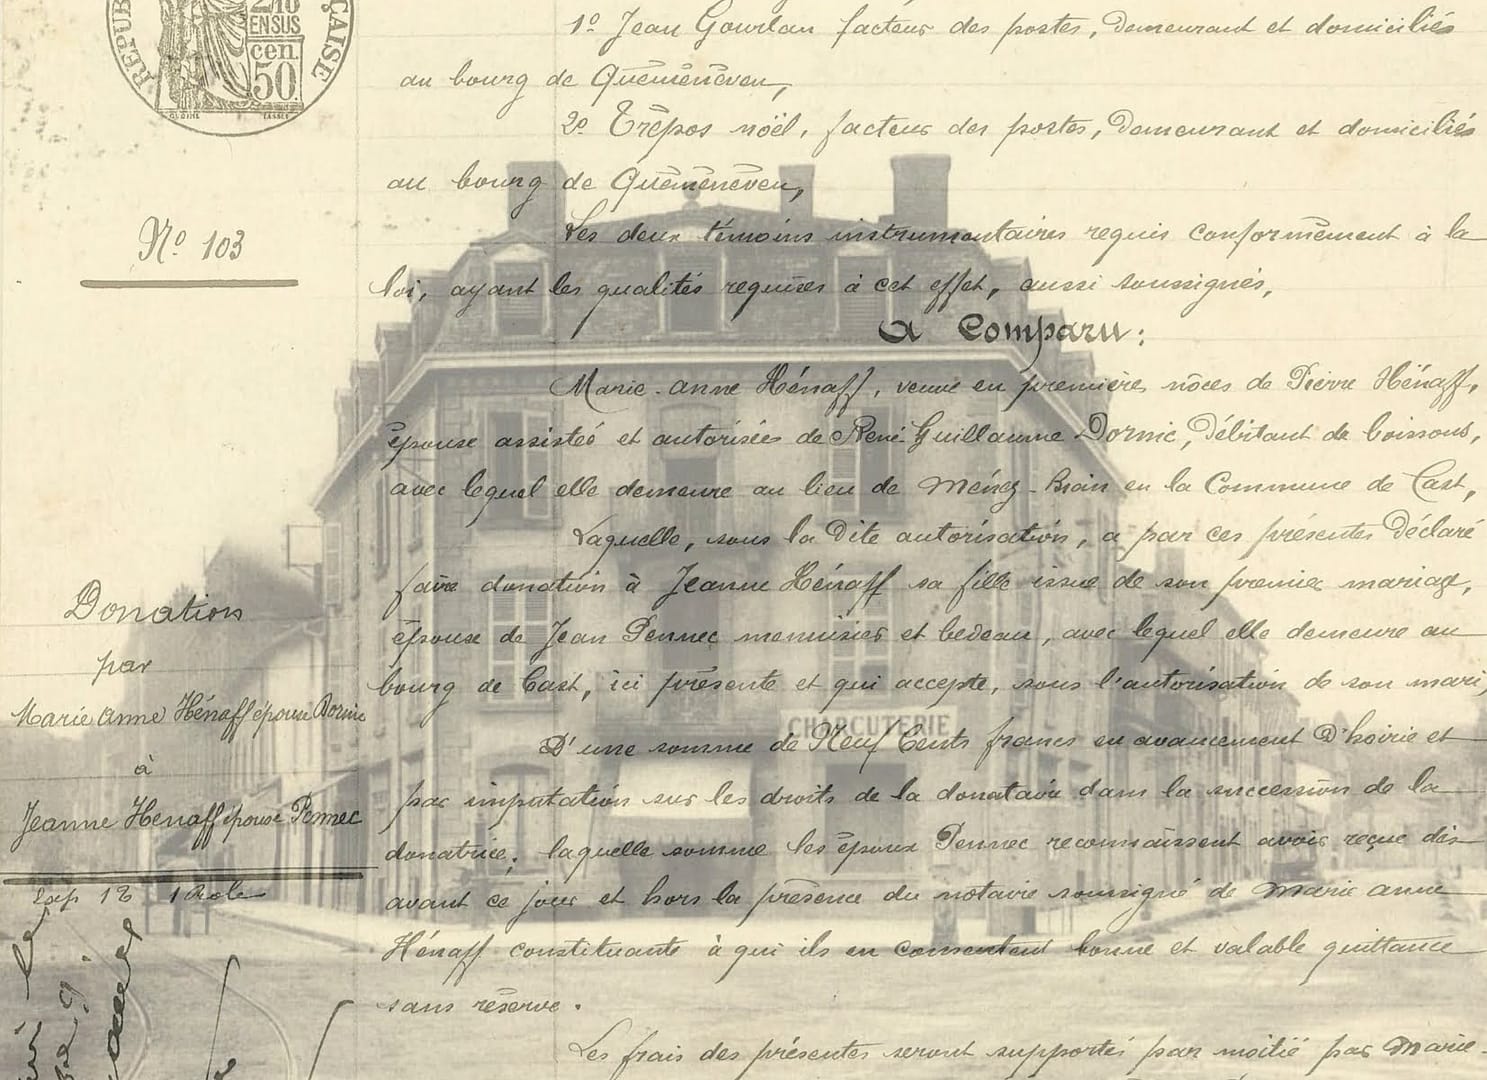 RÉPUB
ÇAISE
EN SUS
cen.
50
1º Jean Gourlan facteur des postes, demeurant et domiciliés
au bourg de Quéménéven,
2º Trépos noël, facteur des postes, demeurant et domiciliés
au bourg de Quéménéven,
Les deux témoins instrumentaires requis conformément à la
loi, ayant les qualités requises à cet effet, aussi soussignés,
A Comparu:
Marie-anne Hénaff, veuve en première noces de Pierre Hénaff,
épouse assistée et autorisée de René-Guillaume Dornic, débitant de boissons,
avec lequel elle demeure au lieu de en la Commune de Cast,
Laquelle, sous la dite autorisation, a par ces présentes déclaré
faire donation à Jeanne Hénaff sa fille issue de son premier mariage,
épouse de Jean Pennec menuisier et bedeau, avec lequel elle demeure au
bourg de Cast, ici présente et qui accepte, sous l'autorisation de son mari,
D'une somme de Neuf Cents francs en avancement d'hoirie et
par imputation sur les droits de la donataire dans la succession de la
donatrice; laquelle somme les époux Pennec reconnaissent avoir reçue dès
avant ce jour et hors la présence du notaire soussigné de Marie anne
Hénaff constituante à qui ils en consentent bonne et valable quittance
sans réserve.
Les frais des présentes seront supportés par moitié par Marie-
Nº 103
Donation
par
Marie Anne Hénaff épouse Dornic
à
Jeanne Hénaff épouse Pennec
1 Role
CHARCUTERIE